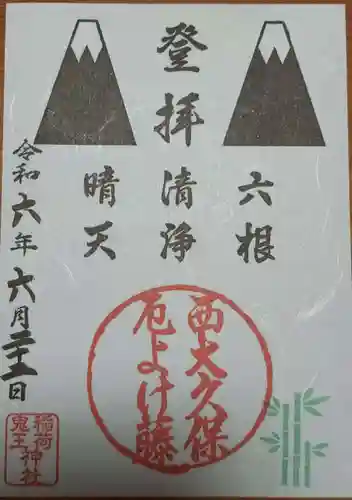 登拝
六根
清浄
晴天
令和六年六月二十二日
西大久保
厄よけ藤
稲荷
鬼王神社